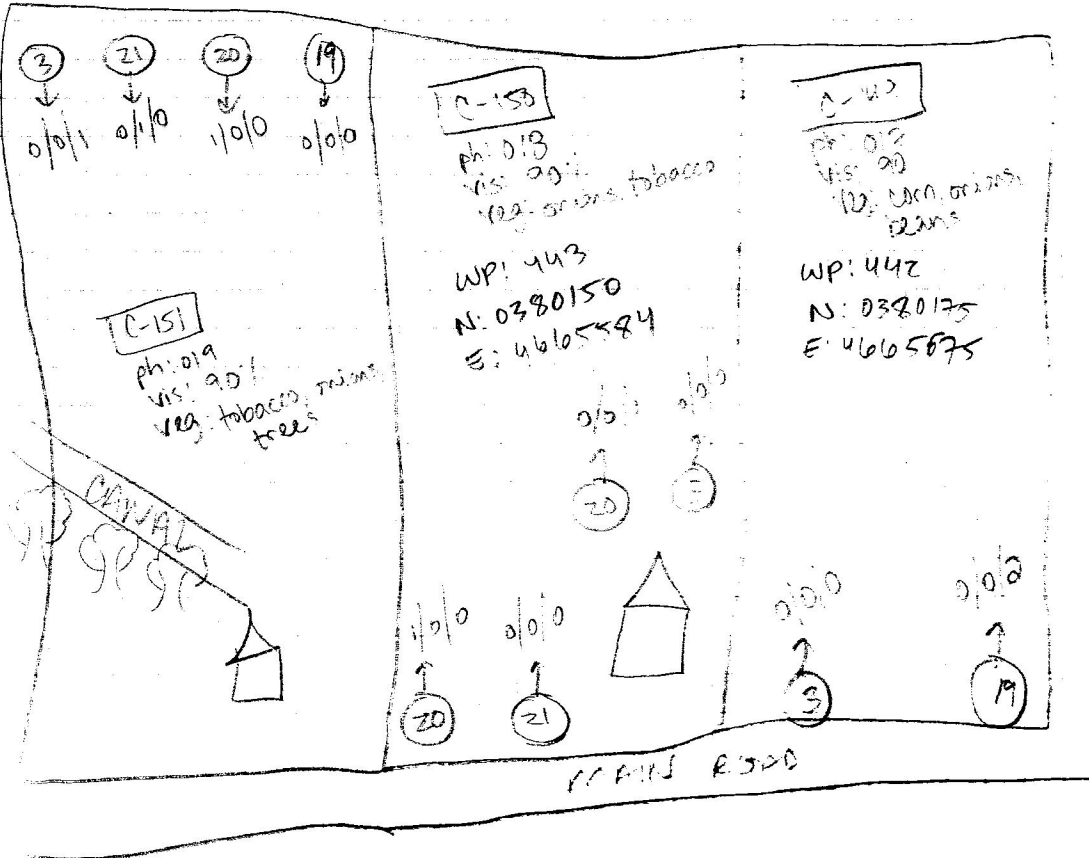 3 21 20 19
0/0/1 0/1/0 1/0/0 0/0/0
C-151
ph: 019
vis: 90%
veg: tobacco, onions
trees
CANAL
C-158
ph: 018
vis: 90%
veg: onions, tobacco
WP: 443
N: 0380150
E: 4665584
0/0/1 0/0/0
20
1/0/0 0/0/0
20 21
vis: 90
veg: corn, onions,
beans
WP: 442
N: 0380175
E: 4665675
0/0/0 0/0/2
3 19
MAIN ROAD